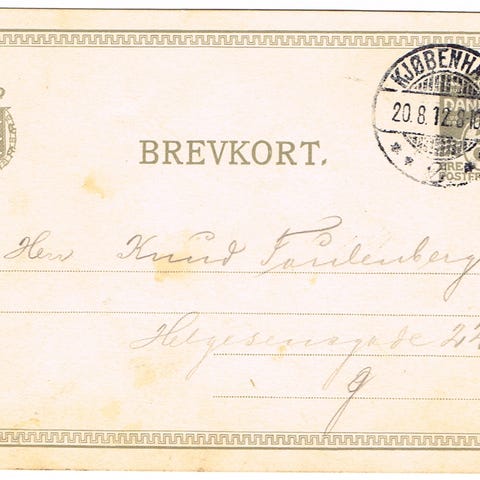 KJØBENHA
20.8.12.8-10
DAN
BRE
POSTF
BREVKORT.
Herr Knud Faulenberg
Helgesensgade 22